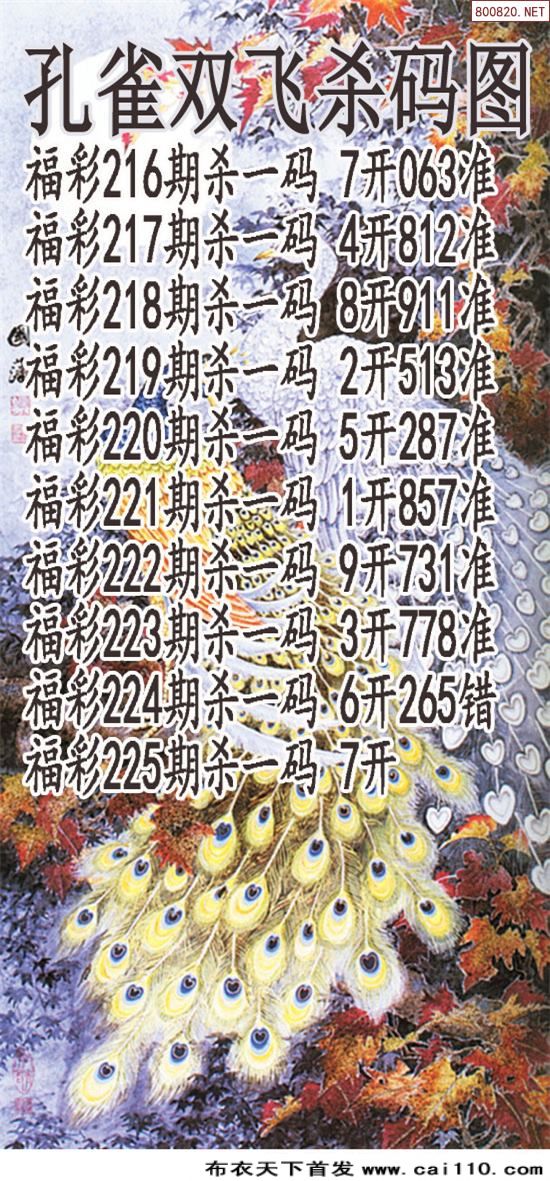 800820.NET
孔雀双飞杀码图
福彩216期杀一码 7开063准
福彩217期杀一码 4开812准
福彩218期杀一码 8开911准
福彩219期杀一码 2开513准
福彩220期杀一码 5开287准
福彩221期杀一码 1开857准
福彩222期杀一码 9开731准
福彩223期杀一码 3开778准
福彩224期杀一码 6开265错
福彩225期杀一码 7开
布衣天下首发 www.cai110.com